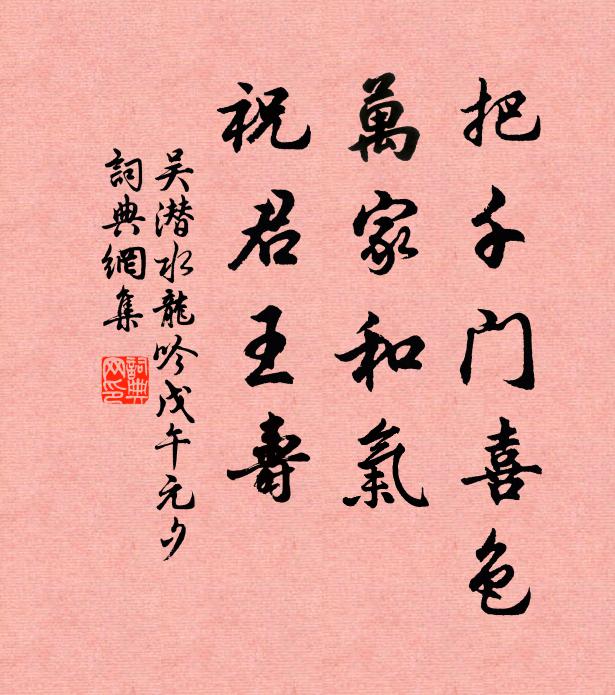 把千门喜色
萬家和氣
祝君王壽
吴潜水龍吟戊午元夕
詞典網集
詞典网印